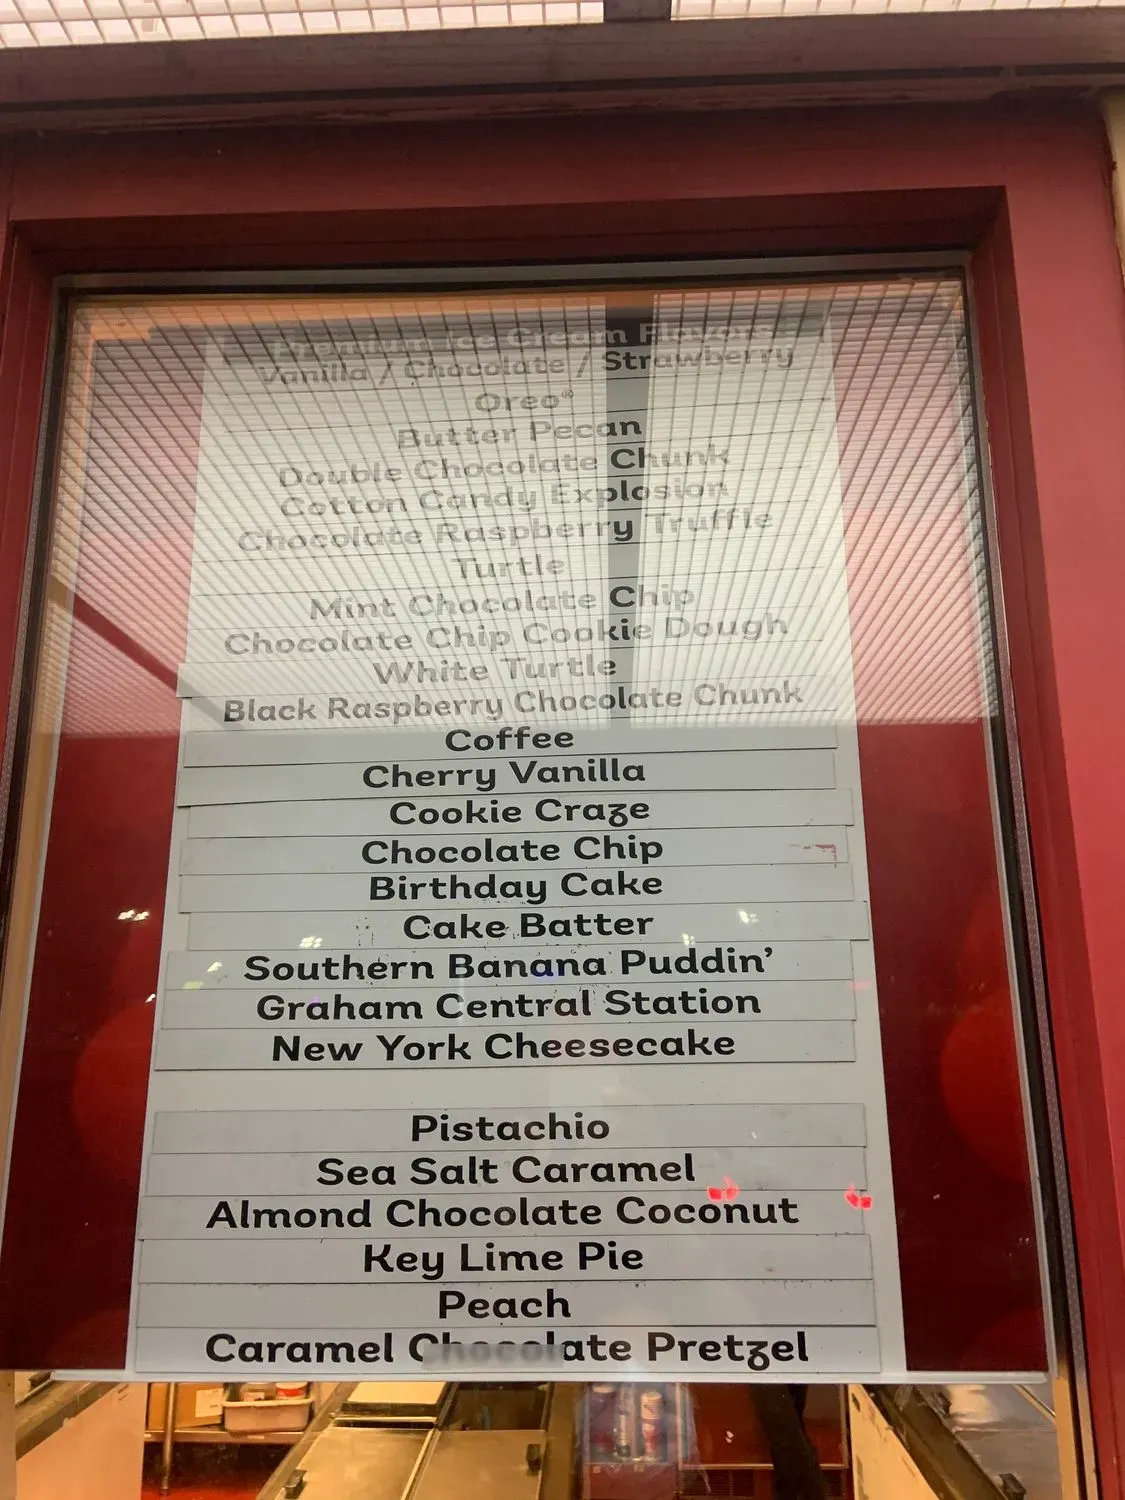 Premium Ice Cream Flavors
Vanilla / Chocolate / Strawberry
Oreo®
Butter Pecan
Double Chocolate Chunk
Cotton Candy Explosion
Chocolate Raspberry Truffle
Turtle
Mint Chocolate Chip
Chocolate Chip Cookie Dough
White Turtle
Black Raspberry Chocolate Chunk
Coffee
Cherry Vanilla
Cookie Craze
Chocolate Chip
Birthday Cake
Cake Batter
Southern Banana Puddin’
Graham Central Station
New York Cheesecake
Pistachio
Sea Salt Caramel
Almond Chocolate Coconut
Key Lime Pie
Peach
Caramel Chocolate Pretzel